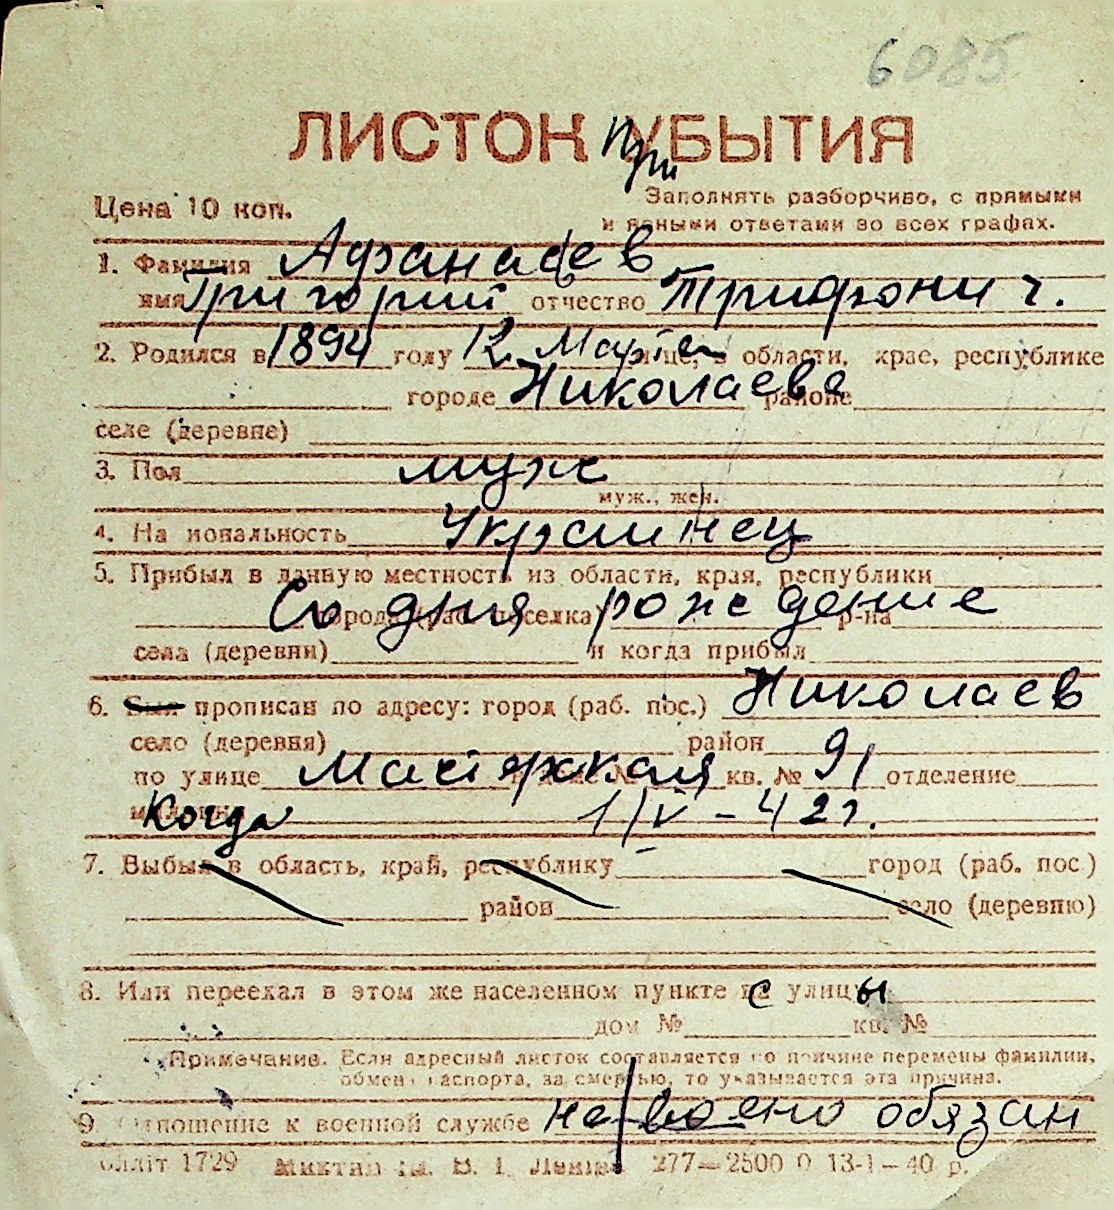 6085
ЛИСТОК при УБЫТИЯ
Цена 10 коп.
Заполнять разборчиво, с прямыми
и ясными ответами во всех графах.
1. Фамилия Афанасьев
имя Григорий отчество Трифонич.
2. Родился в 1894 году 12 Марта области, крае, республике
городе Николаеве районе
селе (деревне)
3. Пол муж
муж., жен.
4. На иональность Украинец
5. Прибыл в данную местность из области, края, республики
Со дня рождение города (раб. поселка) р-на
села (деревни) и когда прибыл
6. Был прописан по адресу: город (раб. пос.) Николаев
село (деревня) район
по улице кв. № 91 отделение
Когда 1/IV – 42 г.
7. Выбыл в область, край, республику город (раб. пос.)
район село (деревню)
8. Или переехал в этом же населенном пункте с улицы
дом № кв. №
Примечание. Если адресный листок составляется по причине перемены фамилии,
обмена паспорта, за смертью, то указывается эта причина.
9. Отношение к военной службе не/военно обязан
блліт 1729 277—2500 0 13-1—40 р.